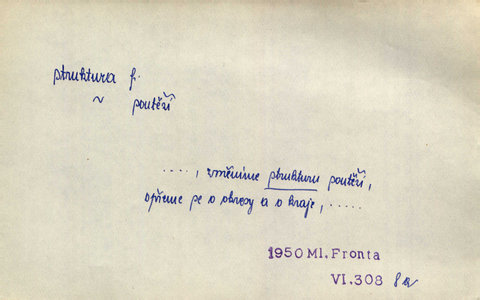 struktura f.
~ soutěží
....., změníme strukturu soutěží,
opřeme se o okresy a o kraje, .....
1950 Ml. Fronta
VI. 308 8a